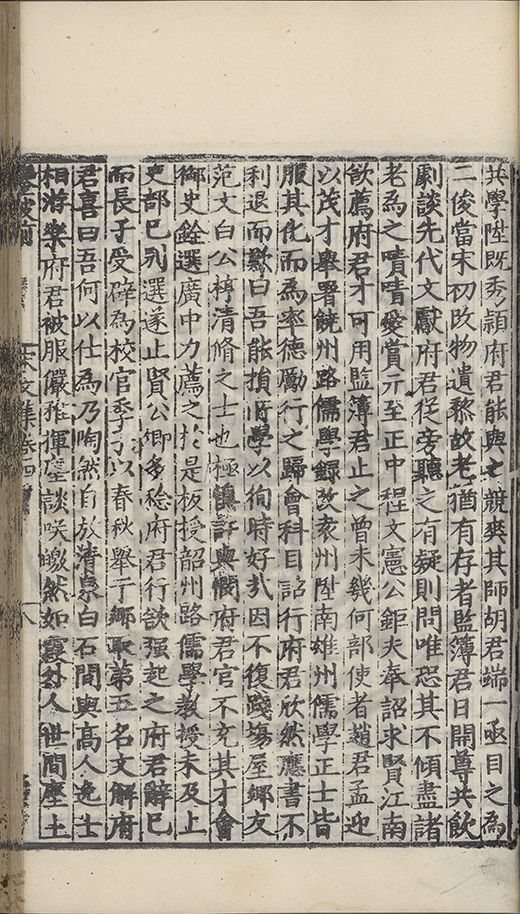 共學陞既秀穎府君能與之競爽其師胡君端一亟目之為
二俊當宋初改物遺黎故老猶有存者監簿君日開尊共飲
劇談先代文獻府君從旁聽之有疑則問唯恐其不傾盡諸
老為之嘖嘖愛賞亓至正中程文憲公鉅夫奉詔求賢江南
欲薦府君才可用監簿君止之曾未幾何部使者趙君孟迎
以茂才舉署饒州路儒學錄改袁州陞南雄州儒學正士皆
服其化而為率德勵行之歸會科目詔行府君欣然應書不
利退而歎曰吾能損所學以徇時好𢦏因不復踐塲屋鄉友
范文白公梈清脩之士也極慎許與憫府君官不充其才會
御史銓選廣中力薦之於是板授韶州路儒學教授未及上
吏部已列選遂止賢公卿多稔府君行欲强起之府君辭已
而長子受辟為校官季子以春秋舉于鄉取第五名文解府
君喜曰吾何以仕為乃陶然自放清泉白石間與高人逸士
相游樂府君被服儼雅揮麈談咲皦然如霞外人世間塵土